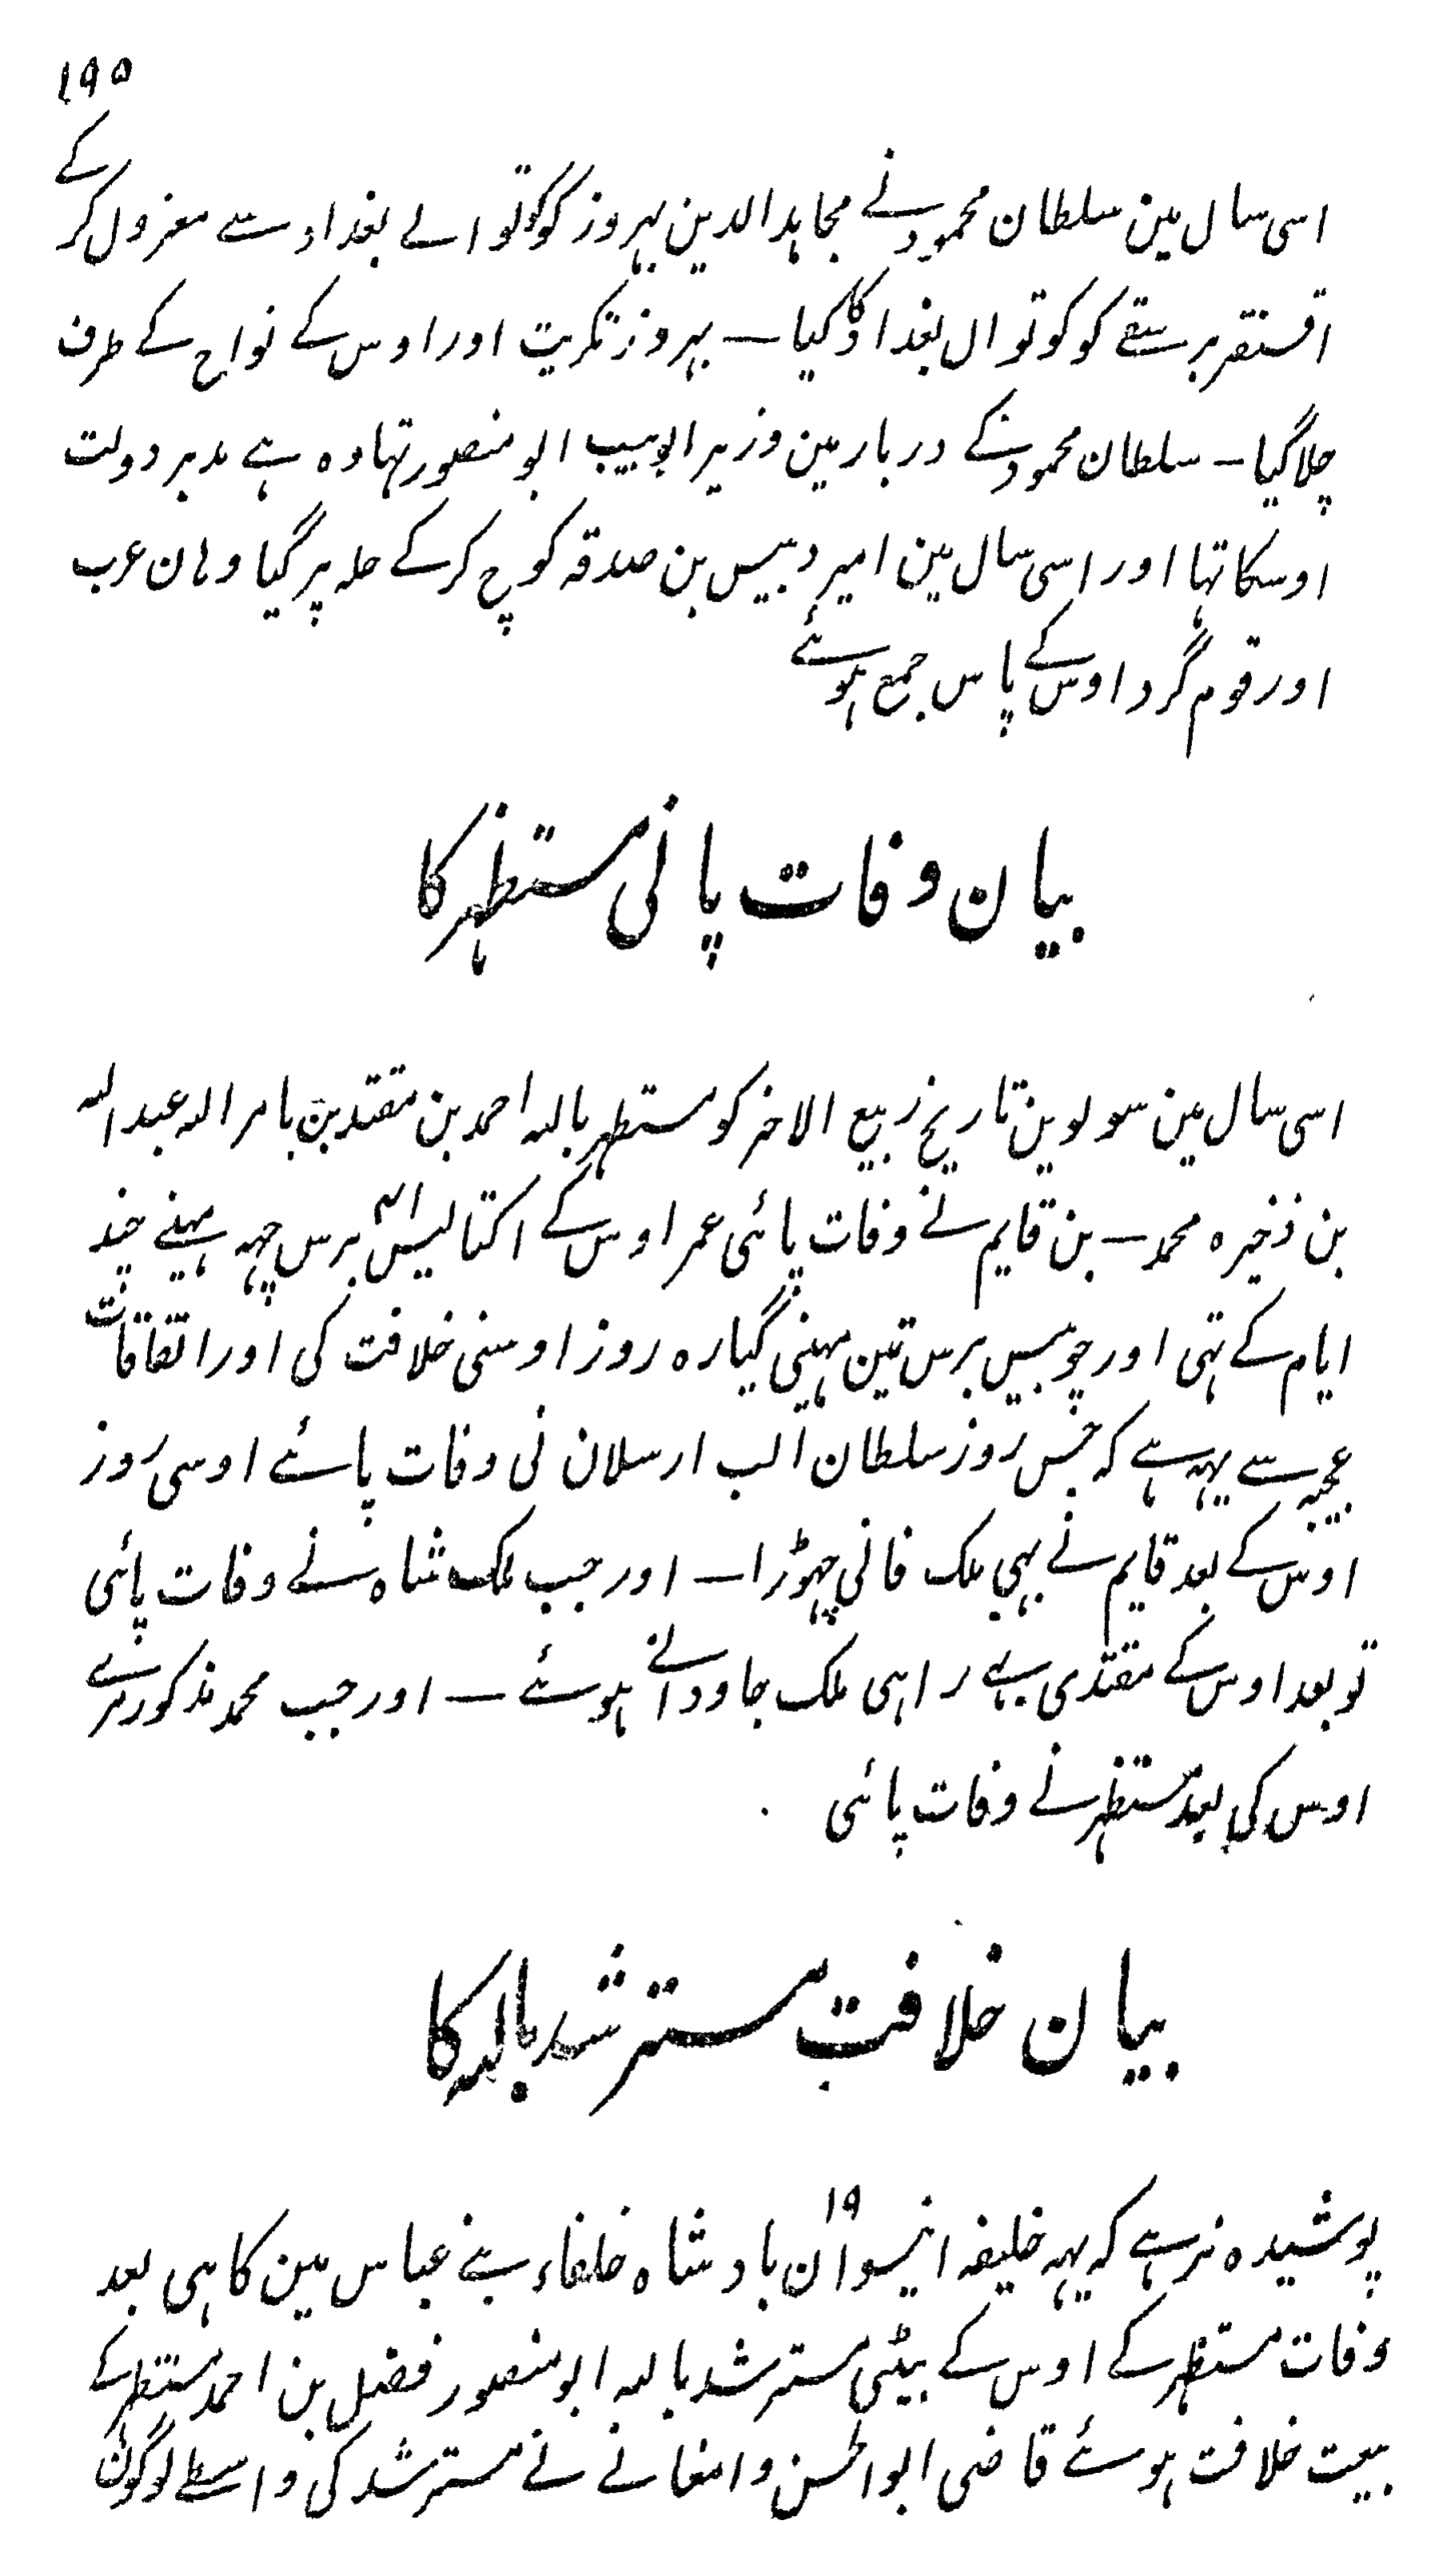 ۱۹۵
اسی سال مین سلطان محمود نے مجاہد الدین بہروز کو کوتوالے بغداد سے معزول کر کے
اقسنقر برسقے کو کوتوال بغداد کا کیا — بہروز تکریت اور اوس کے نواح کے طرف
چلا گیا — سلطان محمود کے دربار مین وزیر ابوبیب ابو منصور تہا وہ ہے مدبر دولت
اوسکا تہا اور اسی سال مین امیر دبیس بن صدقہ کوچ کر کے حلہ پر گیا وہان عرب
اور قوم گرد اوس کے پاس جمع ہوئے
بیان وفات پانی مستظہر کا
اسی سال مین سولوین تاریخ ربیع الاخر کو مستظہر باللہ احمد بن مقتد بن بامر اللہ عبد اللہ
بن ذخیرہ محمد — بن قایم نے وفات پائی عمر اوس کے اکتالیس ۴۱ برس چہہ مہنے چند
ایام کے تہی اور چوبیس برس تین مہینی گیارہ روز اوسنی خلافت کی اور اتفاقات
عجیبہ سے یہہ ہے کہ جس روز سلطان الب ارسلان نی وفات پائے اوسی روز
اوس کے بعد قایم نے بہی ملک فانی چہوڑا — اور جب ملک شاہ نے وفات پائی
تو بعد اوس کے مقتدی بہے راہی ملک جاودانے ہوئے — اور جب محمد مذکور مرے
اوس کی بعد مستظہر نے وفات پائی
بیان خلافت مسترشد باللہ کا
پوشیدہ نرہے کہ یہہ خلیفہ انیسوان ۱۹ بادشاہ خلفاء بنے عباس مین کا ہی بعد
وفات مستظہر کے اوس کے بیٹی مسترشد باللہ ابو منصور فضل بن احمد مستظہر کے
بیعت خلافت ہوئے قاضی ابو الحسن دامغانے نے مسترشد کی واسطے لوگون